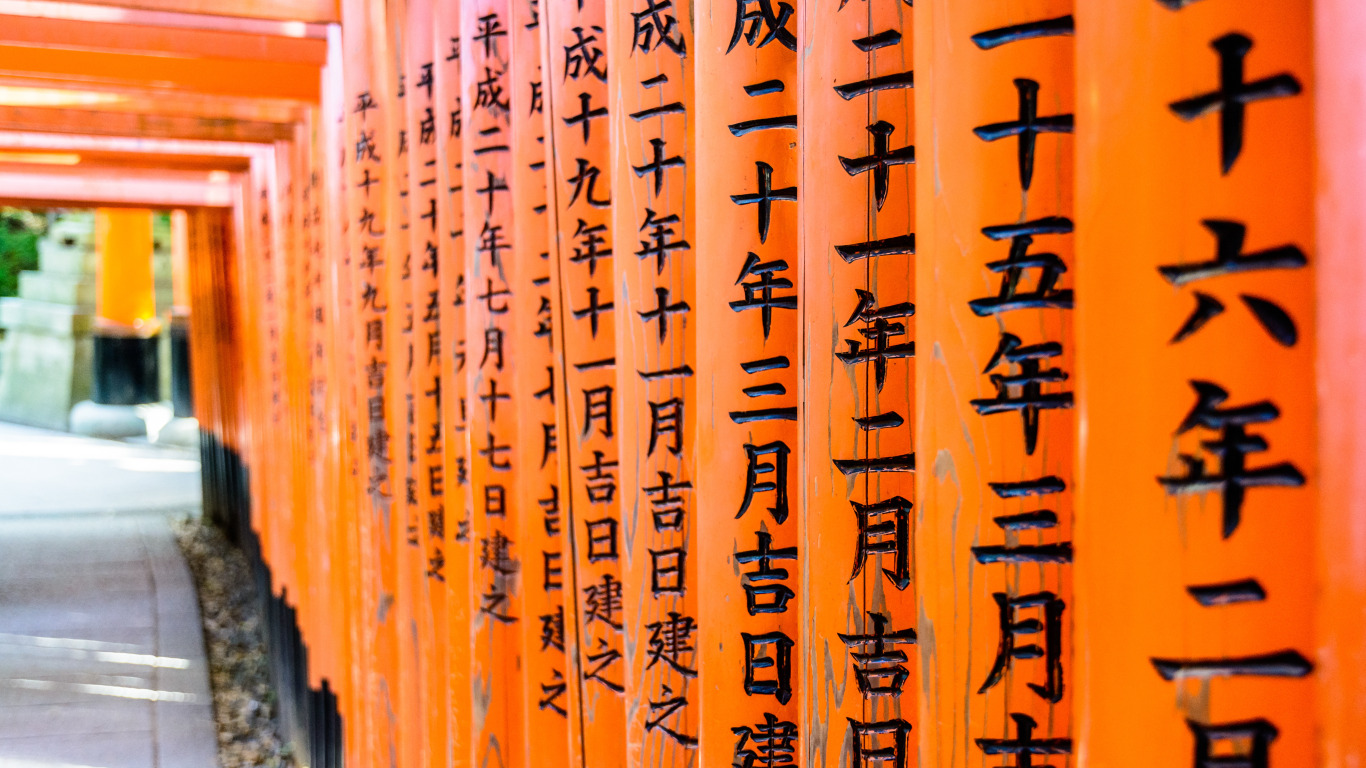 十六年二月
二十五年三月吉
二十一年二月吉日
成二十年三月吉日建
成二十年十一月吉日建之
平成十九年十一月吉日建之
年七月吉日建之
平成二十年七月十七日建之
平成二十年五月十五日建之
平成十九年九月吉日建之